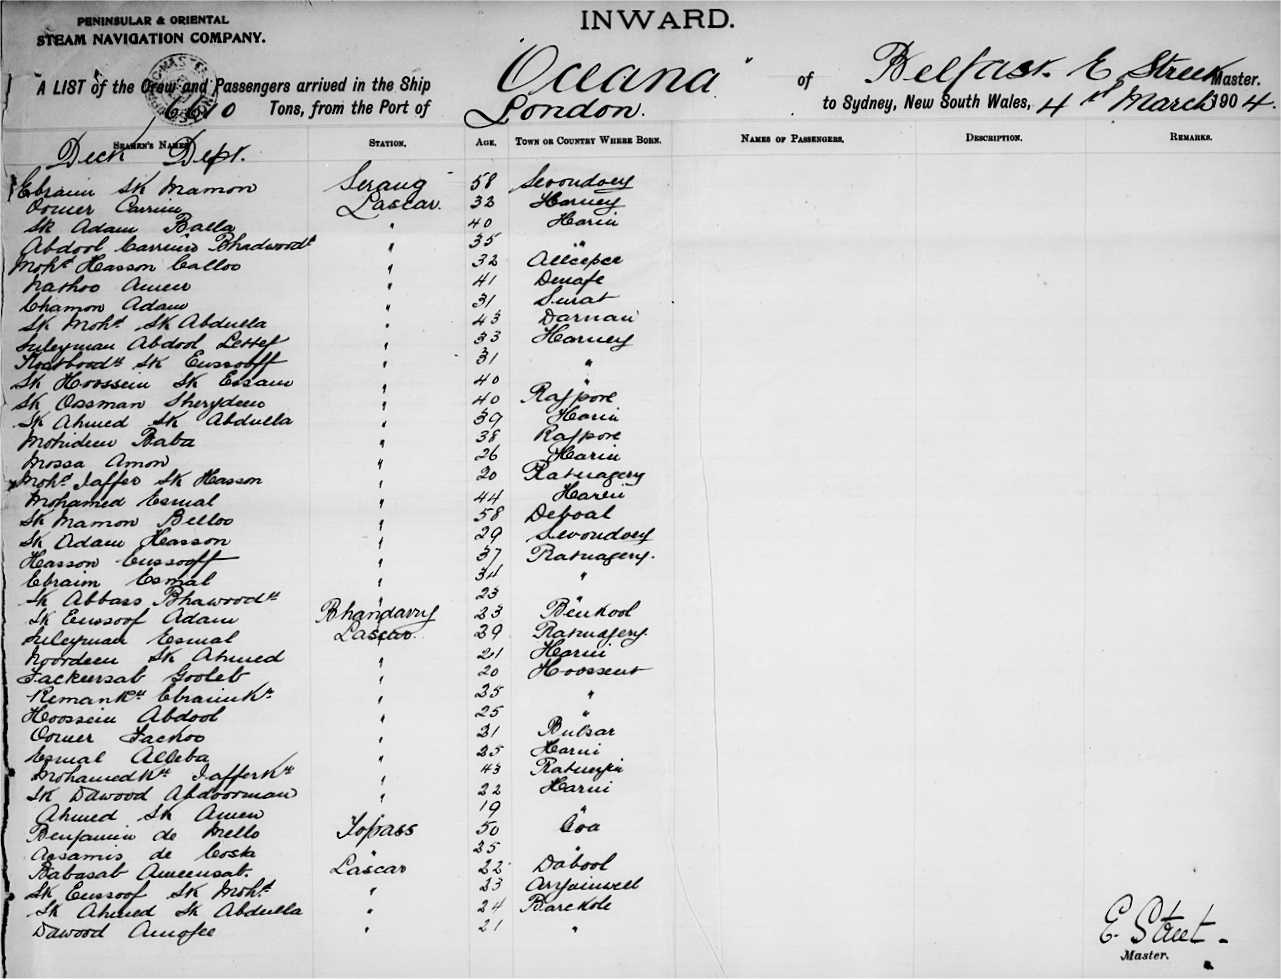 PENINSULAR & ORIENTAL
STEAM NAVIGATION COMPANY.
INWARD.
A LIST of the Crew and Passengers arrived in the Ship "Oceana" of Belfast. E. Street Master.
6610 Tons, from the Port of London. to Sydney, New South Wales, 4th March 1904.
SEAMEN'S NAMES STATION. AGE. TOWN OR COUNTRY WHERE BORN. NAMES OF PASSENGERS. DESCRIPTION. REMARKS.
Deck Dept.
Ebraim Sk Mamon Serang 58
Oomer Carrim Lascar. 32 Harney
Sk Adam Balla " 40 Harin
Abdool Carrim " 35 "
Mohd Hasson Calloo " 32
Nathoo Amen " 41
Chamon Adam " 31 Surat
Sk Mohd Sk Abdulla " 43 Darnan
Suleyman Abdool " 33 Harney
Sk Eussooff " 31 "
Sk Hoossein Sk Essam " 40 "
Sk Ossman " 40 Rajpore
Sk Ahmed Sk Abdulla " 39 Harin
Mohideen Baba " 38 Rajpore
Mossa Amon " 26 Harin
Mohd Jaffer Sk Hasson " 20 Ratnagery
Mohamed Esmal " 44 Harin
Sk Mamon Belloo " 58
Sk Adam Hasson " 29
Hasson Eussooff " 37 Ratnagery.
Ebraim Esmal " 34 "
Sk Abbass " 23 "
Sk Eussoof Adam Bhandarry 23
Suleyman Esmal Lascar. 29 Ratnagery
Noordeen Sk Ahmed " 21 Harin
Fackeersab " 20
" 25 "
Hoossein Abdool " 25 "
Oomer Fackoo " 21 Bulsar
Esmal Alleba " 25 Harni
Mohamed Kn Jaffer Kn " 43
Sk Dawood Abdoorman " 22 Harni
Ahmed Sk Amen 19 "
Benjamin de Mello Topass 50 Goa
de Costa " 25 "
Babasab Ameensab. Lascar 22 Dabool
Sk Eussoof Sk Mohd " 23
Sk Ahmed Sk Abdulla " 24
Dawood " 21 "
E. Street
Master.